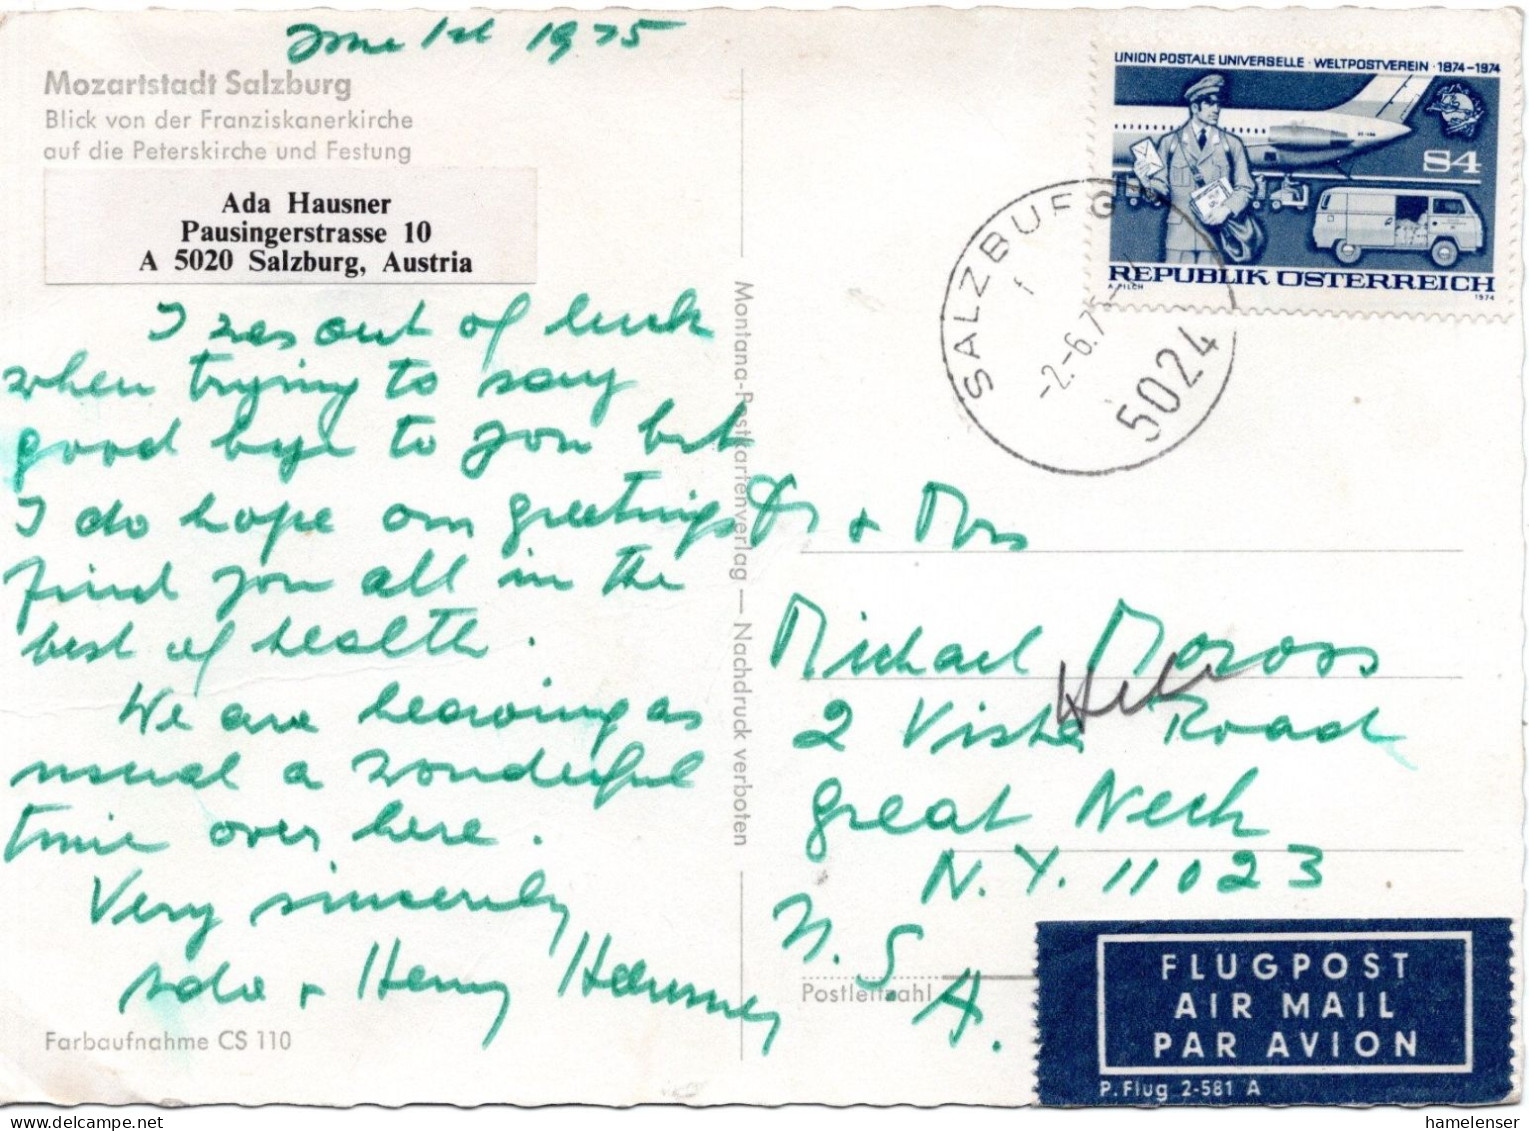 June 1st 1975
Mozartstadt Salzburg
Blick von der Franziskanerkirche
auf die Peterskirche und Festung
Ada Hausner
Pausingerstrasse 10
A 5020 Salzburg, Austria
I was out of luck
when trying to say
good bye to you but
I do hope our greetings
find you all in the
best of health.
We are having as
usual a wonderful
time over here.
Very sincerely
Ada + Henry Hausner
Farbaufnahme CS 110
Montana-Postkartenverlag — Nachdruck verboten
UNION POSTALE UNIVERSELLE · WELTPOSTVEREIN · 1874-1974
S4
REPUBLIK ÖSTERREICH
A. PILCH 1974
SALZBURG
f
-2.-6.7
5024
Dr + Mrs
Michael Moross
2 Vista Road
Great Neck
N.Y. 11023
U.S.A.
Postleitzahl
FLUGPOST
AIR MAIL
PAR AVION
P. Flug 2-581 A
hamelenser